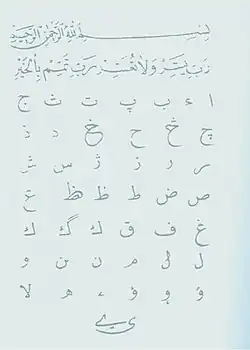 بسم الله الرحمن الرحيم
رب يسر ولا تعسر رب تمم بالخير
ا ء ب پ ت ث ج
چ څ ح خ د ذ
ر ز ژ س ش
ص ض ط ظ ع
غ ف ق ك گ ك
ل م ن و
ؤ و ؤ ء ه لا
ی ے